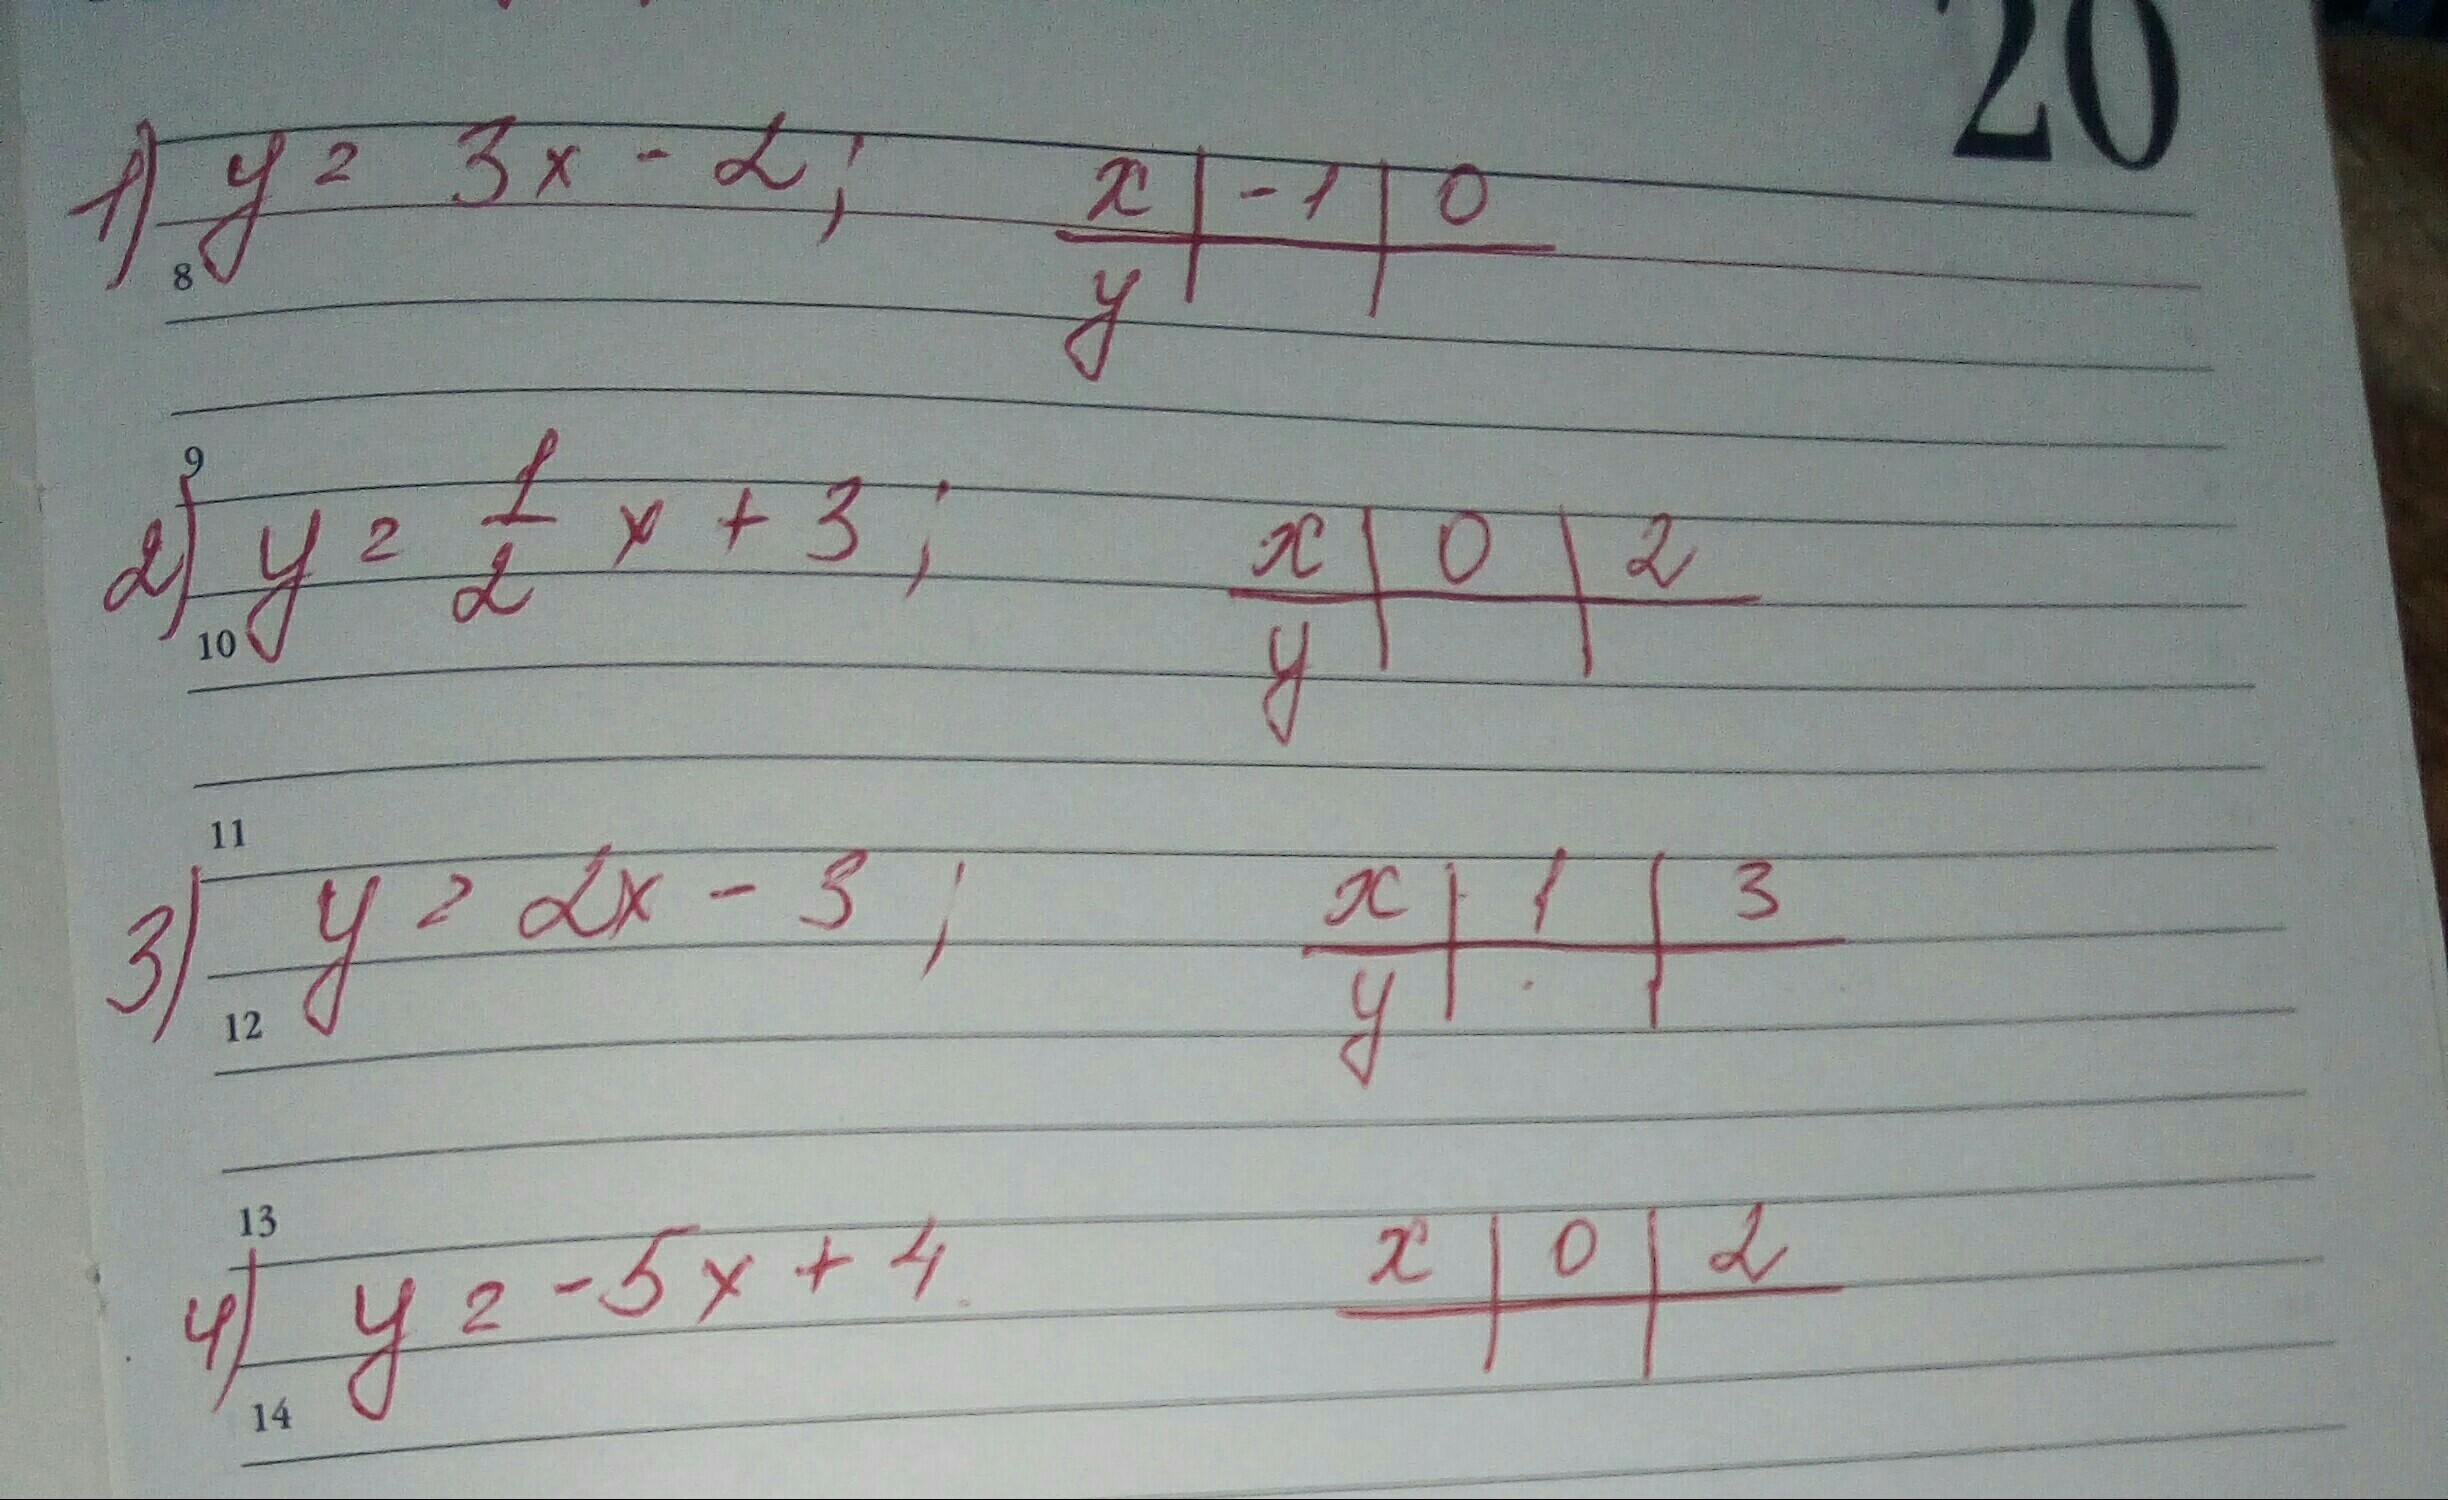 20
1) y = 3x - 2; x | -1 | 0
8 y
9
2) y = 1/2 x + 3; x | 0 | 2
10 y
11
3) y = 2x - 3; x | 1 | 3
12 y
13
4) y = -5x + 4. x | 0 | 2
14